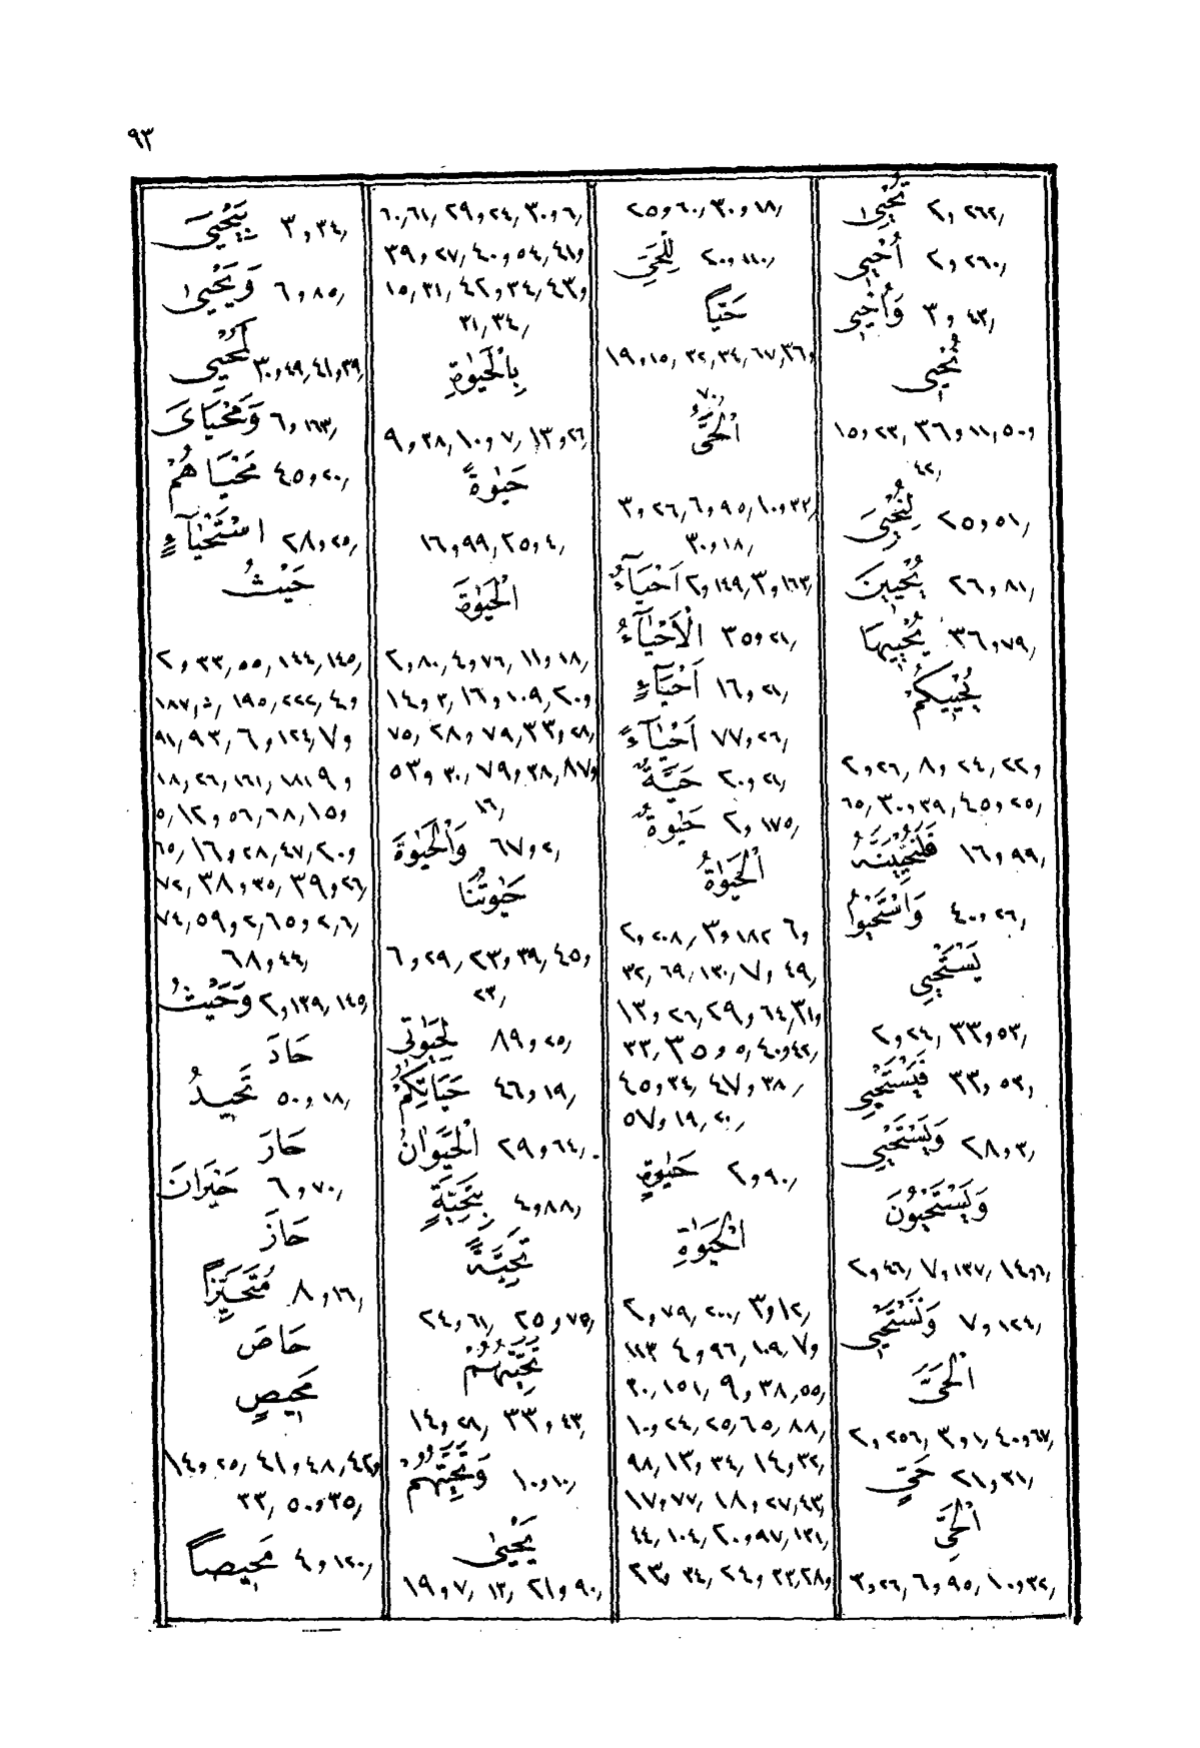 ٩٣
تُحْيِى ٢و٢٦٢,
أُحْيِى ٢و٢٦٠,
وَأُحْيِى ٣و٤٣,
نُحْيِى
١٥و٢٣, ٣٦و١١, ٥٠و
٤٢,
لِنُحْيِيَ ٢٥و٥١,
يُحْيِينَ ٢٦و٨١,
يُحْيِيهَا ٣٦و٧٩,
يُحْيِيكُمْ
٢و٢٦, ٨و٢٤, ٢٢و
٦٥, ٣٠و٣٩, ٤٥و٢٥,
فَلَنُحْيِيَنَّهُ ١٦و٩٩,
وَاسْتَحْيُوا ٤٠و٢٦,
يَسْتَحْيِي
٢و٢٤, ٣٣و٥٣,
فَيَسْتَحْيِي ٣٣و٥٣,
وَيَسْتَحْيِي ٢٨و٣,
وَيَسْتَحْيُونَ
٢و٤٦, ٧و١٣٧, ١٤و٦,
وَنَسْتَحْيِي ٧و١٢٤,
اَلْحَيُّ
٢و٢٥٦, ٣و١, ٤٠و٦٧,
حَيٍّ ٢١و٣١,
اَلْحَيِّ
٣و٢٦, ٦و٩٥, ١٠و٣٢,
٢٥و٦٠, ٣٠و١٨,
لِلْحَيِّ ٢٠و١١٠,
حَيًّا
١٩و١٥, ٣٢, ٣٤, ٦٧, ٣٦و
٧٠,
اَلْحَيَّ
٣و٢٦, ٦و٩٥, ١٠و٣٢,
٣٠و١٨,
اَحْيَآءٌ ٢و١٤٩, ٣و١٦٣,
اَلْأَحْيَآءُ ٣٥و٢١,
اَحْيَآءٍ ١٦و٢١,
اَحْيَآءً ٧٧و٢٦,
حَيَّةٌ ٢٠و٢١,
حَيٰوةٌ ٢و١٧٥,
اَلْحَيٰوةُ
٢و٢٠٨, ٣و١٨٢, ٦و
٣٢, ٦٩, ١٣٠, ٧و٤٩,
١٣و٢٦, ٢٩و٦٤, ٣١و
٣٣, ٣٥و٥, ٤٠و٤٢,
٤٥و٣٤, ٤٧و٣٨,
٥٧و١٩, ٢٠,
حَيٰوةٍ ٢و٩٠,
اَلْحَيٰوةِ
٢و٧٩, ٢٠٠, ٣و١٢,
١٢٣ ٤و٩٦, ١٠٩, ٧و
٣٠, ١٥١, ٩و٣٨, ٥٥,
١٠و٢٤, ٢٥, ٦٥, ٨٨,
٩٨, ١٣و٣٤, ١٤و٣٢,
١٧و٧٧, ١٨و٢٧, ٤٣,
٤٤, ١٠٤, ٢٠و٩٧, ١٣١,
٢٣و٣٤, ٢٤و٣٣, ٢٨و
٦٠, ٦١, ٢٩و٢٤, ٣٠و٦,
٣٩و٢٧, ٤٠و٥٤, ٤١و
١٥, ٣١, ٤٢و٣٤, ٤٣و
٣١, ٣٤,
بِالْحَيٰوةِ
٩و٣٨, ١٠و٧, ١٣و٢٦,
حَيٰوةً
١٦و٩٩, ٢٥و٤,
اَلْحَيٰوةَ
٢و٨٠, ٤و٧٦, ١١و١٨,
١٤و٣, ١٦و١٠٩, ٢٠و
٧٥, ٢٨و٧٩, ٣٣و٢٨,
٥٣و٣٠, ٧٩و٣٨, ٨٧و
١٦,
وَالْحَيٰوةَ ٦٧و٢,
حَيٰوتُنَا
٦و٢٩, ٢٣و٣٩, ٤٥و
٢٣,
لِحَيٰوتِى ٨٩و٢٥,
حَيَاتِكُمْ ٤٦و١٩,
اَلْحَيَوَانُ ٢٩و٦٤,
بِتَحِيَّةٍ ٤و٨٨,
تَحِيَّةً
٢٤و٦١, ٢٥و٧٥,
تَحِيَّتُهُمْ
١٤و٢٨, ٣٣و٤٣,
وَتَحِيَّتُهُمْ ١٠و١٠,
يَحْيٰى
١٩و٧, ١٣, ٢١و٩٠,
بِيَحْيٰى ٣و٣٤,
وَيَحْيٰى ٦و٨٥,
لَمُحْيِى ٣٠و٤٩, ٤١و٣٩,
وَمَحْيَايَ ٦و١٦٣,
مَحْيَاهُمْ ٤٥و٢٠,
اسْتِحْيَآءٍ ٢٨و٢٥,
حَيْثُ
٢و٣٣, ٥٥, ١٤٤, ١٤٥,
١٨٧, ١٩٥, ٢٢٢, ٤و
٩١, ٩٣, ٦و١٢٤, ٧و
١٨, ٢٦, ١٦١, ١٨١, ٩و
٥, ١٢و٥٦, ٦٨, ١٥و
٦٥, ١٦و٢٨, ٤٧, ٢٠و
٧٢, ٣٨و٣٥, ٣٩و٢٦,
٧٤, ٥٩و٢, ٦٥و٢, ٦,
٦٨و٤٤,
وَحَيْثُ ٢و١٣٩, ١٤٥,
حَادَ
تَحِيدُ ٥٠و١٨,
حَارَ
حَيْرَانَ ٦و٧٠,
حَازَ
مُتَحَيِّزًا ٨و١٦,
حَاصَ
مَحِيصٍ
١٤و٢٥, ٤١و٤٨, ٤٢و
٣٣, ٥٠و٣٥,
مَحِيصًا ٤و١٢٠,